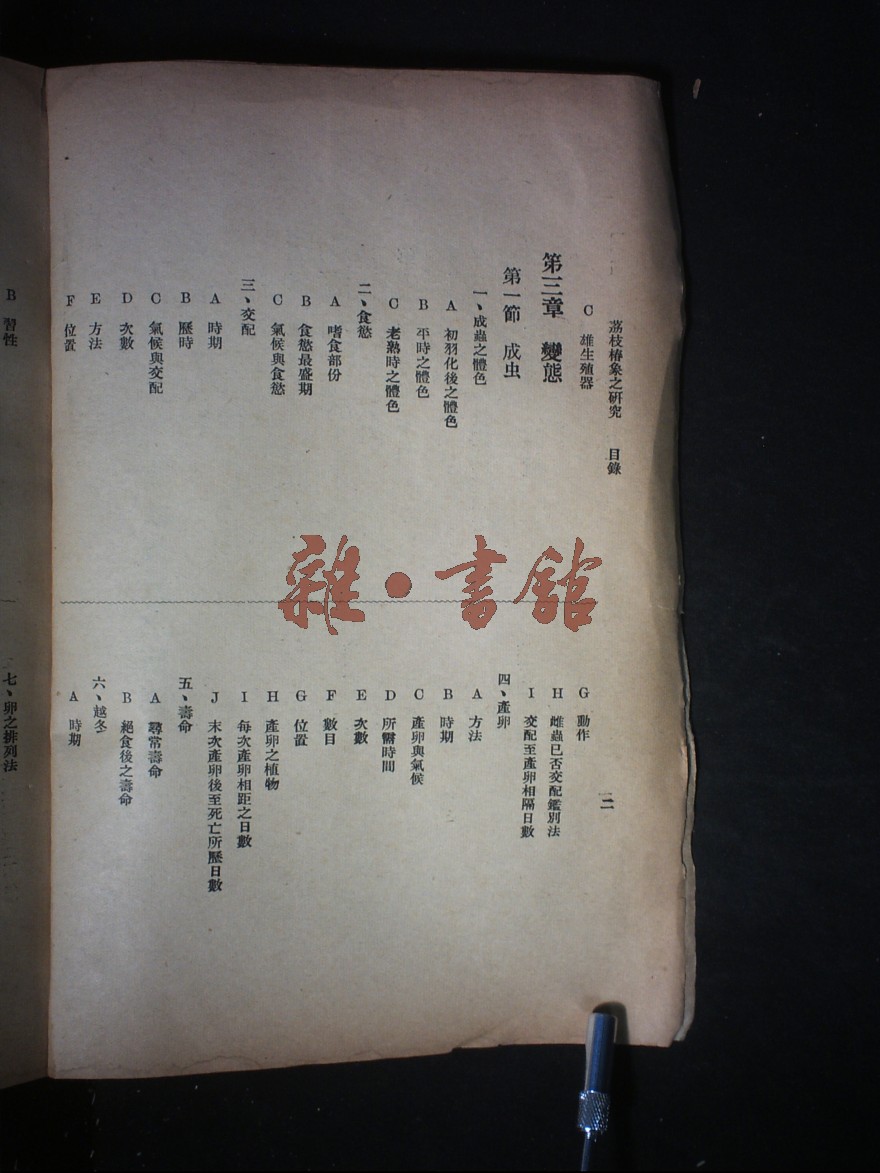 荔枝椿象之研究 目錄
二
C 雄生殖器
第三章 變態
第一節 成虫
一、成蟲之體色
A 初羽化後之體色
B 平時之體色
C 老熟時之體色
二、食慾
A 嗜食部份
B 食慾最盛期
C 氣候與食慾
三、交配
A 時期
B 歷時
C 氣候與交配
D 次數
E 方法
F 位置
G 動作
H 雌蟲已否交配鑑別法
I 交配至產卵相隔日數
四、產卵
A 方法
B 時期
C 產卵與氣候
D 所需時間
E 次數
F 數目
G 位置
H 產卵之植物
I 每次產卵相距之日數
J 末次產卵後至死亡所歷日數
五、壽命
A 尋常壽命
B 絕食後之壽命
六、越冬
A 時期
B 習性
七、卵之排列法
雜·書館